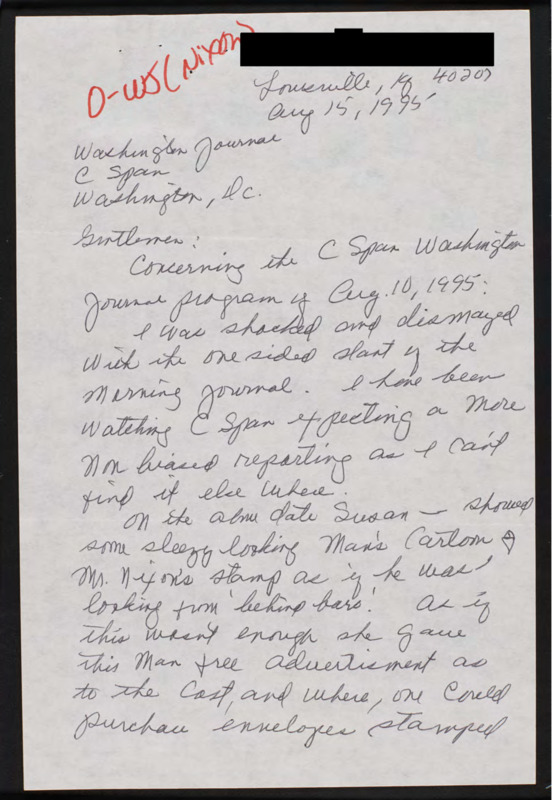 O-WJ (Nixon)
Louisville, Ky 40207
Aug 15, 1995
Washington Journal
C Span
Washington, D.C.
Gentlemen:
Concerning the C Span Washington
Journal program of Aug. 10, 1995:
I was shocked and dismayed
with the one sided slant of the
Morning Journal. I have been
watching C Span expecting a more
non biased reporting as I can't
find it else where.
On the above date Susan — showed
some sleezy looking man's cartoon of
Mr. Nixon's stamp as if he was
looking from 'behind bars'. As if
this wasn't enough she gave
this man free advertisment as
to the cost, and where, one could
purchase envelopes stamped